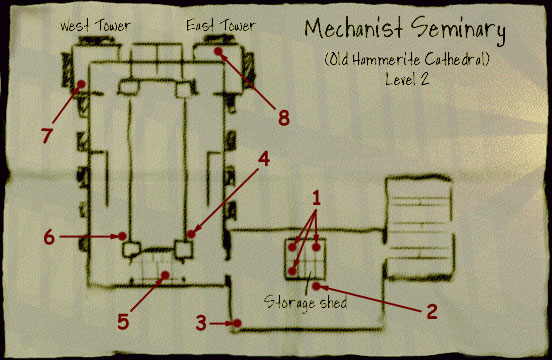 West Tower
East Tower
Mechanist Seminary
(Old Hammerite Cathedral)
Level 2
7
8
1
4
6
Storage shed
2
5
3